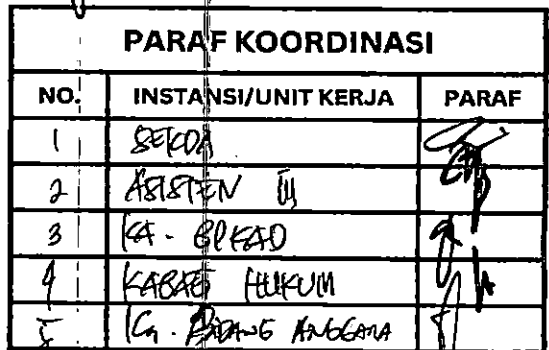 PARAF KOORDINASI
NO. INSTANSI/UNIT KERJA PARAF
1 SEKDA
2 ASISTEN III
3 KA - BPKAD
4 KABAG HUKUM
5 Ka. BIDANG ANGGARAN